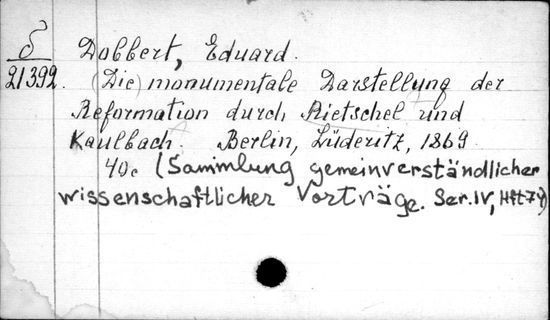 δ
21392.
Dobbert, Eduard.
(Die) monumentale Darstellung der
Reformation durch Rietschel und
Kaulbach. Berlin, Lüderitz, 1869.
40c (Sammlung gemeinverständlicher
wissenschaftlicher Vorträge. Ser. IV, Hft 74)